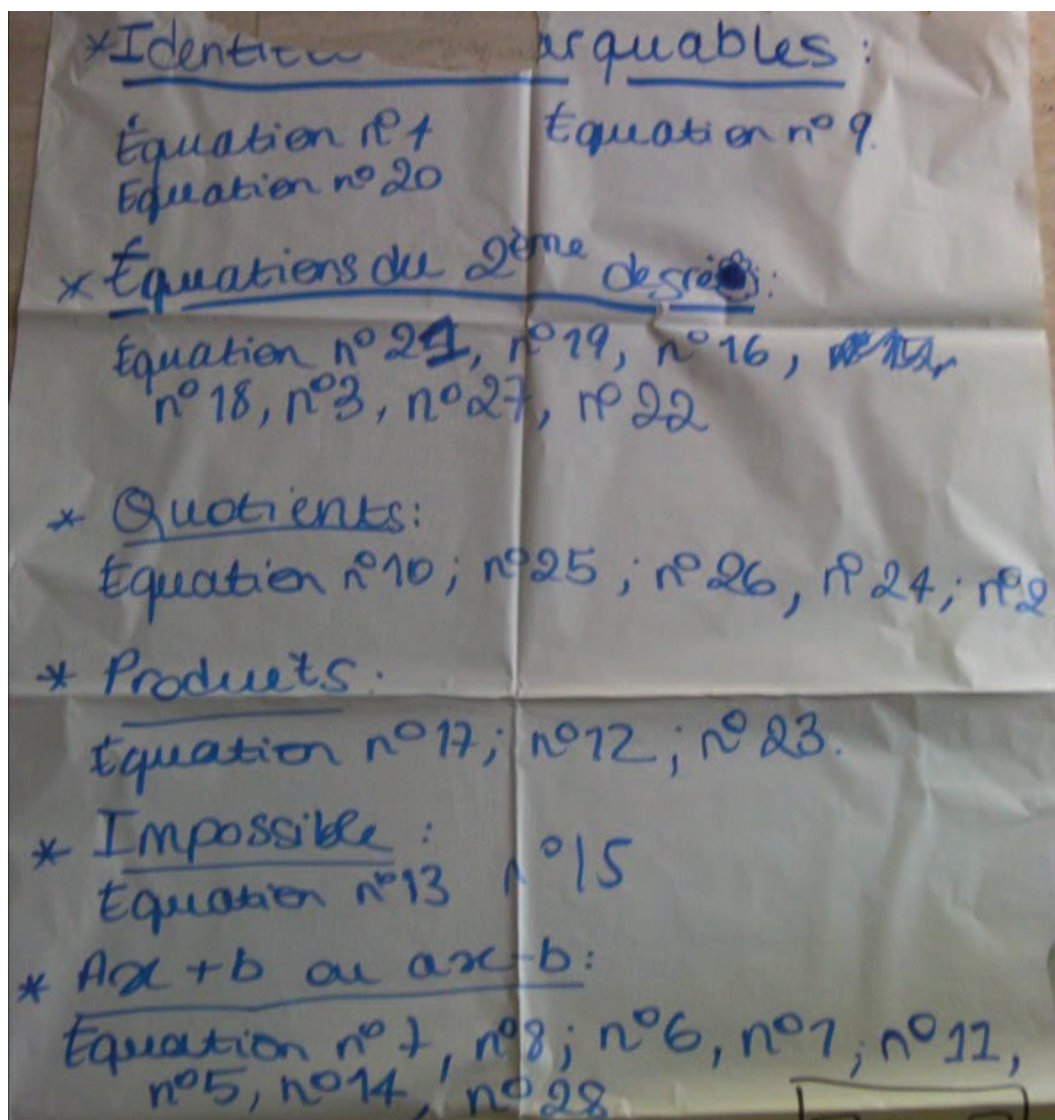 * Identit arquables :
Équation n°4 Équation n°9.
Equation n°20
* Équations du 2ème degré :
Equation n°21, n°19, n°16,
n°18, n°3, n°27, n°22
* Quotients :
Equation n°10 ; n°25 ; n°26, n°24 ; n°2
* Produits.
Equation n°17 ; n°12 ; n°23.
* Impossible :
Equation n°13 n°15
* Ax + b ou ax - b :
Equation n°7, n°8 ; n°6, n°1, n°11,
n°5, n°14, n°28